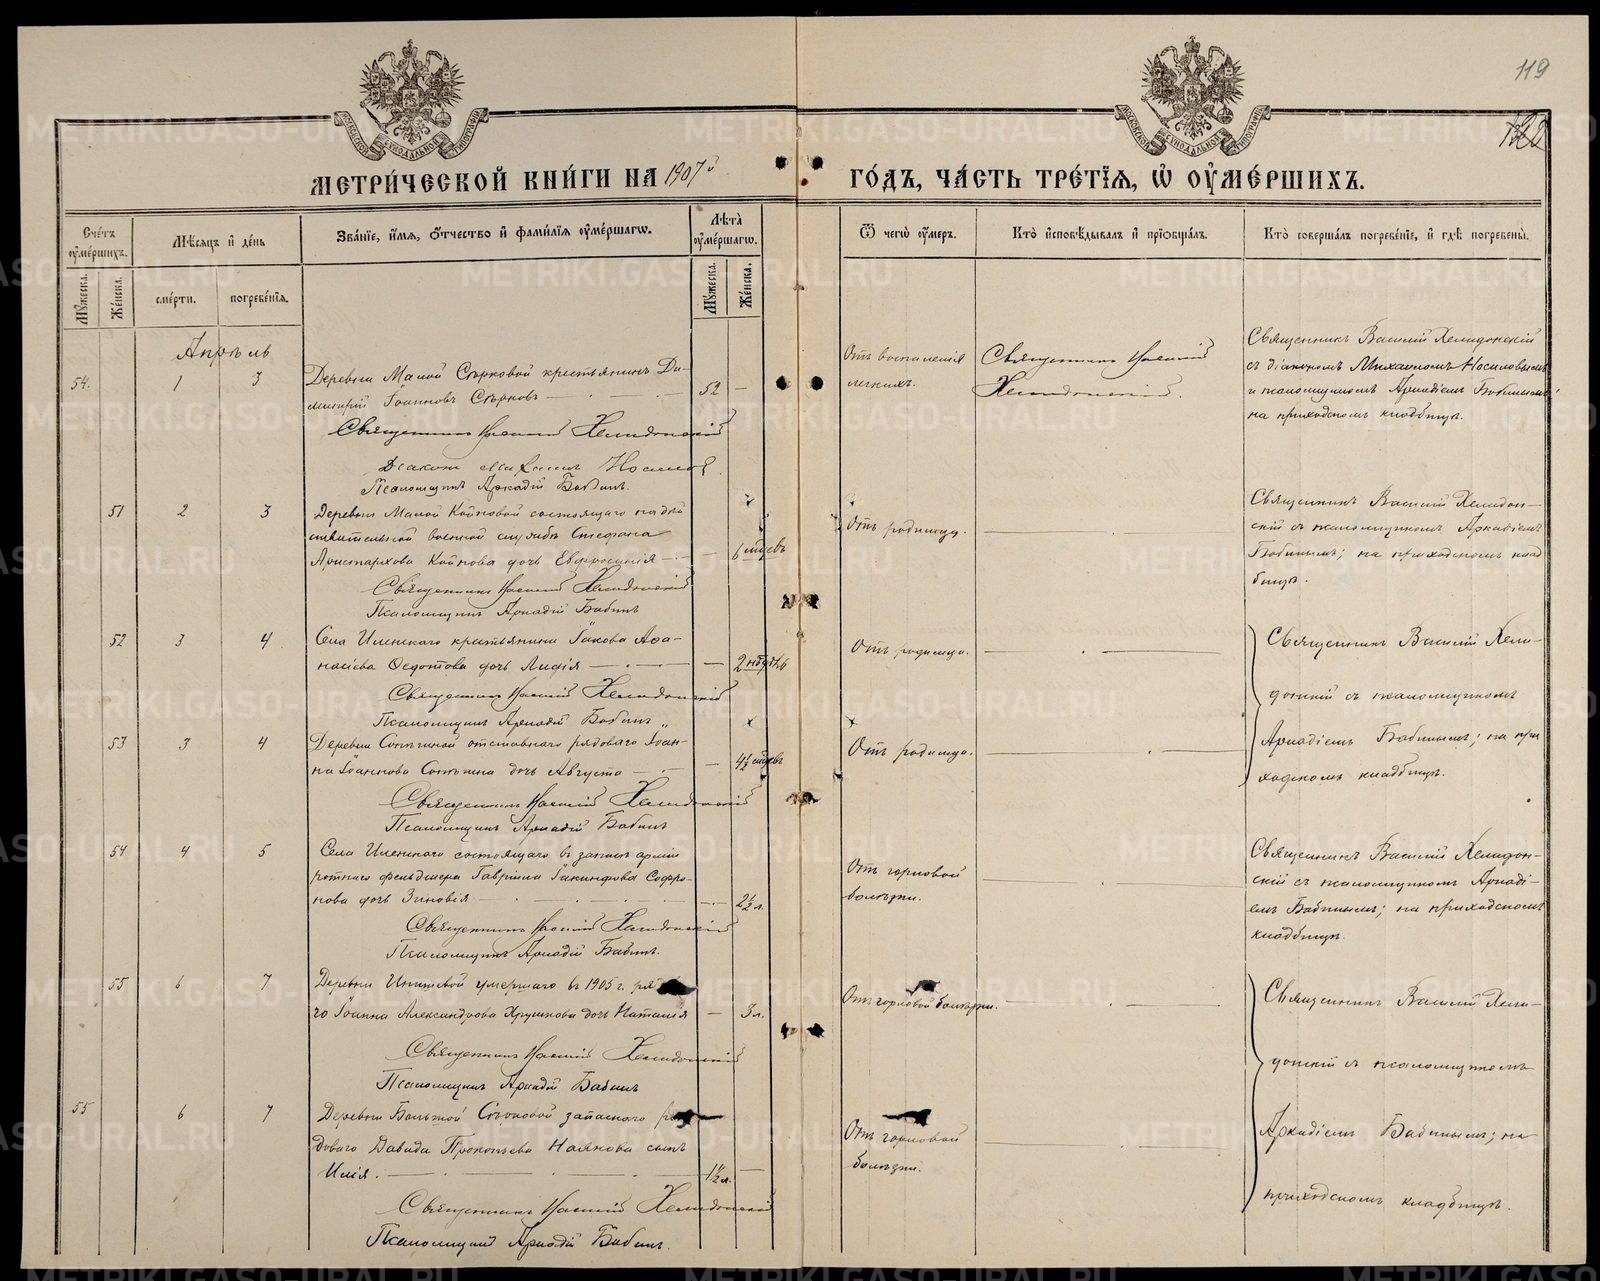 119
МОСКОВСКОЙ СѴНОДАЛЬНОЙ ТИПОГРАФІИ
МОСКОВСКОЙ СѴНОДАЛЬНОЙ ТИПОГРАФІИ
МЕТРИ́ЧЕСКОЙ КНИ́ГИ НА 1907й
ГО́ДЪ, ЧА́СТЬ ТРЕ́ТІѦ, Ѡ ОУМЕ́РШИХЪ.
Сче́тъ оуме́ршихъ.
Мѣ́сѧцъ и де́нь
Зва́ніе, и́мѧ, о́тчество и фами́лїѧ оуме́ршагѡ.
Лѣта̀ оуме́ршагѡ.
Ѿ чегѡ̀ оу́меръ.
Кто̀ исповѣ́дывалъ и прїѡбща́лъ.
Кто̀ соверша́лъ погребе́ніе, и гдѣ̀ погребены̀.
Мꙋ́жеска.
Же́нска.
сме́рти.
погребе́нїѧ.
Мꙋ́жеска.
Же́нска.
Апрѣль
54. 1 3
Деревни Малой Сѣрковой крестьянинъ Ди-
митрій Іоанновъ Сѣрковъ 52 —
Священникъ Василій Хелидонскій
Діаконъ Михаилъ Носиловъ
Псаломщикъ Аркадій Бабинъ.
Отъ воспаленія
легкихъ.
Священникъ Василій
Хелидонскій.
Священникъ Василій Хелидонскій
съ діакономъ Михаиломъ Носиловымъ
и псаломщикомъ Аркадіемъ Бабинымъ;
на приходскомъ кладбищѣ.
51 2 3
Деревни Малой Койновой состоящаго на дѣй
ствительной военной службѣ Стефана
Аристархова Койнова дочь Евфросинія — 6 мцевъ
Священникъ Василій Хелидонскій
Псаломщикъ Аркадій Бабинъ
Отъ родимца.
Священникъ Василій Хелидон-
скій съ псаломщикомъ Аркадіемъ
Бабинымъ; на приходскомъ клад
бищѣ.
52 3 4
Села Иленскаго крестьянина Іакова Аѳа-
насіева Ѳедотова дочь Лидія — 2 нѣдѣль
Священникъ Василій Хелидонскій
Псаломщикъ Аркадій Бабинъ
Отъ родимца.
Священникъ Василій Хели-
донскій съ псаломщикомъ
Аркадіемъ Бабинымъ; на при
ходскомъ кладбищѣ.
53 3 4
отставнаго рядоваго Іоан-
на Іоаннова дочь Августа — 4½ мцевъ
Священникъ Василій Хелидонскій
Псаломщикъ Аркадій Бабинъ
Отъ родимца.
54 4 5
Села Иленскаго состоящаго въ запасѣ арміи
ротнаго фельдшера Гавріила Іакинфова Софро-
нова дочь Зиновія — 2½ л.
Священникъ Василій Хелидонскій
Псаломщикъ Аркадій Бабинъ.
Отъ горловой
болѣзни.
Священникъ Василій Хелидон-
скій съ псаломщикомъ Аркаді-
емъ Бабинымъ; на приходскомъ
кладбищѣ.
55 6 7
Деревни умершаго въ 1905 г.
го Іоанна Александрова Хрушкова дочь Наталія — 3 л.
Священникъ Василій Хелидонскій
Псаломщикъ Аркадій Бабинъ
Отъ горловой болѣзни.
Священникъ Василій Хели-
донскій съ псаломщикомъ
Аркадіемъ Бабинымъ; на
приходскомъ кладбищѣ.
55 6 7
Деревни Большой Сѣрковой запаснаго ря
доваго Давида Прокопьева сынъ
Илія. 1½ л. —
Священникъ Василій Хелидонскій
Псаломщикъ Аркадій Бабинъ.
Отъ горловой
болѣзни.
METRIKI.GASO-URAL.RU